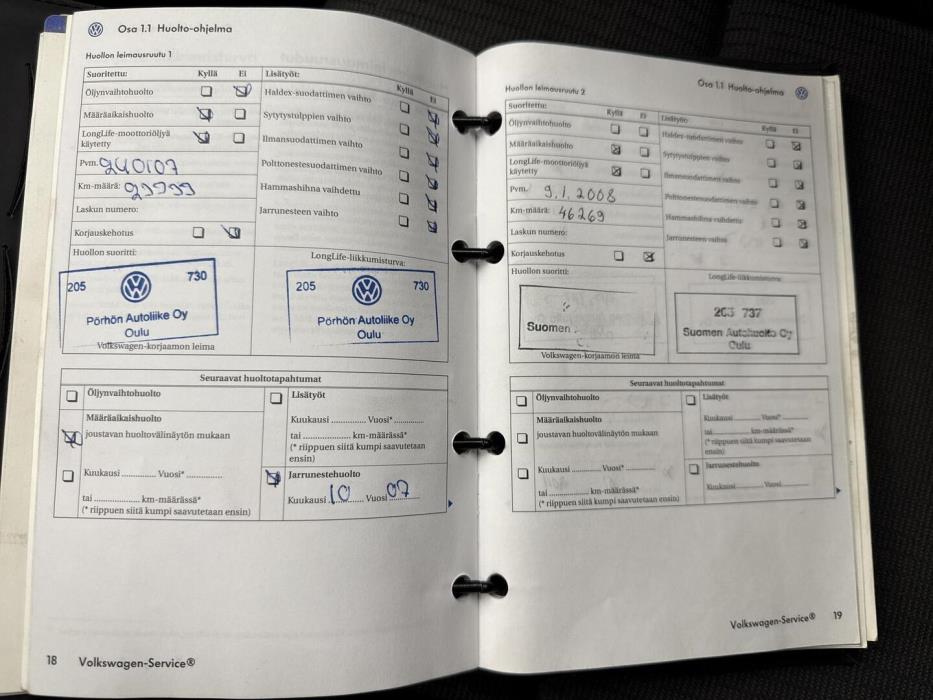 Osa 1.1 Huolto-ohjelma
Huollon leimausruutu 1
Suoritettu: Kyllä Ei
Öljynvaihtohuolto
Määräaikaishuolto
LongLife-moottoriöljyä
käytetty
Pvm.
Km-määrä:
Laskun numero:
Korjauskehotus
Lisätyöt:
Kyllä Ei
Haldex-suodattimen vaihto
Sytytystulppien vaihto
Ilmansuodattimen vaihto
Polttonestesuodattimen vaihto
Hammashihna vaihdettu
Jarrunesteen vaihto
Huollon suoritti:
205 730
Pörhön Autoliike Oy
Oulu
Volkswagen-korjaamon leima
LongLife-liikkumisturva:
205 730
Pörhön Autoliike Oy
Oulu
Seuraavat huoltotapahtumat
Öljynvaihtohuolto
Määräaikaishuolto
joustavan huoltovälinäytön mukaan
Kuukausi ............. Vuosi* .............
tai ..................... km-määrässä*
(* riippuen siitä kumpi saavutetaan ensin)
Lisätyöt
Kuukausi ................ Vuosi* .............
tai ..................... km-määrässä*
(* riippuen siitä kumpi saavutetaan
ensin)
Jarrunestehuolto
Kuukausi 10 Vuosi 07
18 Volkswagen-Service®
Osa 1.1 Huolto-ohjelma
Huollon leimausruutu 2
Suoritettu: Kyllä Ei
Öljynvaihtohuolto
Määräaikaishuolto
LongLife-moottoriöljyä
käytetty
Pvm. 9.1.2008
Km-määrä: 46269
Laskun numero:
Korjauskehotus
Lisätyöt:
Kyllä Ei
Haldex-suodattimen vaihto
Sytytystulppien vaihto
Ilmansuodattimen vaihto
Polttonestesuodattimen vaihto
Hammashihna vaihdettu:
Jarrunesteen vaihto
Huollon suoritti:
Suomen
Volkswagen-korjaamon leima
LongLife-liikkumisturva:
737
Suomen Autohuolto Oy
Oulu
Seuraavat huoltotapahtumat
Öljynvaihtohuolto
Määräaikaishuolto
joustavan huoltovälinäytön mukaan
Kuukausi ............. Vuosi* .............
tai ..................... km-määrässä*
(* riippuen siitä kumpi saavutetaan ensin)
Lisätyöt
Kuukausi ............. Vuosi* .............
tai ..................... km-määrässä*
(* riippuen siitä kumpi saavutetaan
ensin)
Jarrunestehuolto
Kuukausi ............. Vuosi .............
Volkswagen-Service® 19